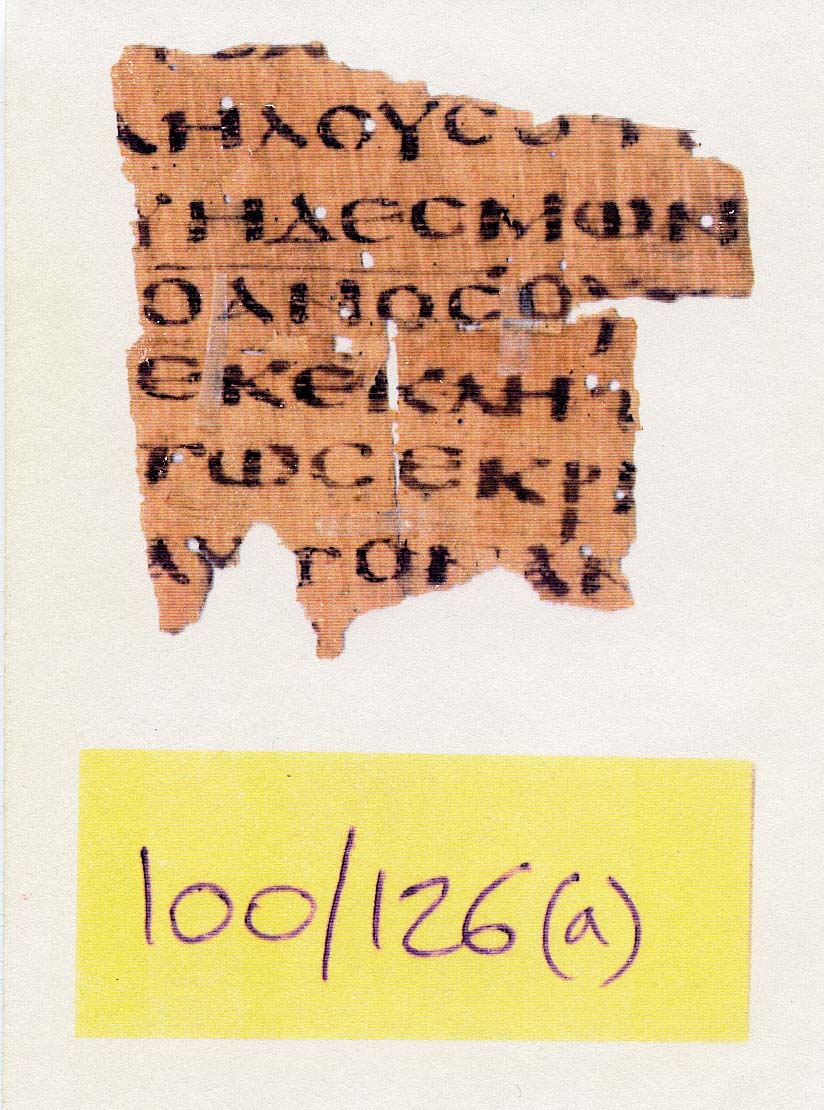 ΛΗΛΟΥϹΟΤΙ
ΥΗΔΕϹΜΩΝ
ΟΑΝΟϹΟΥ
ΕΚΕΚΛΗΤ
ΤΩϹΕΚΡΙ
ΑΥΤΟΝΑΝ
100/126(a)